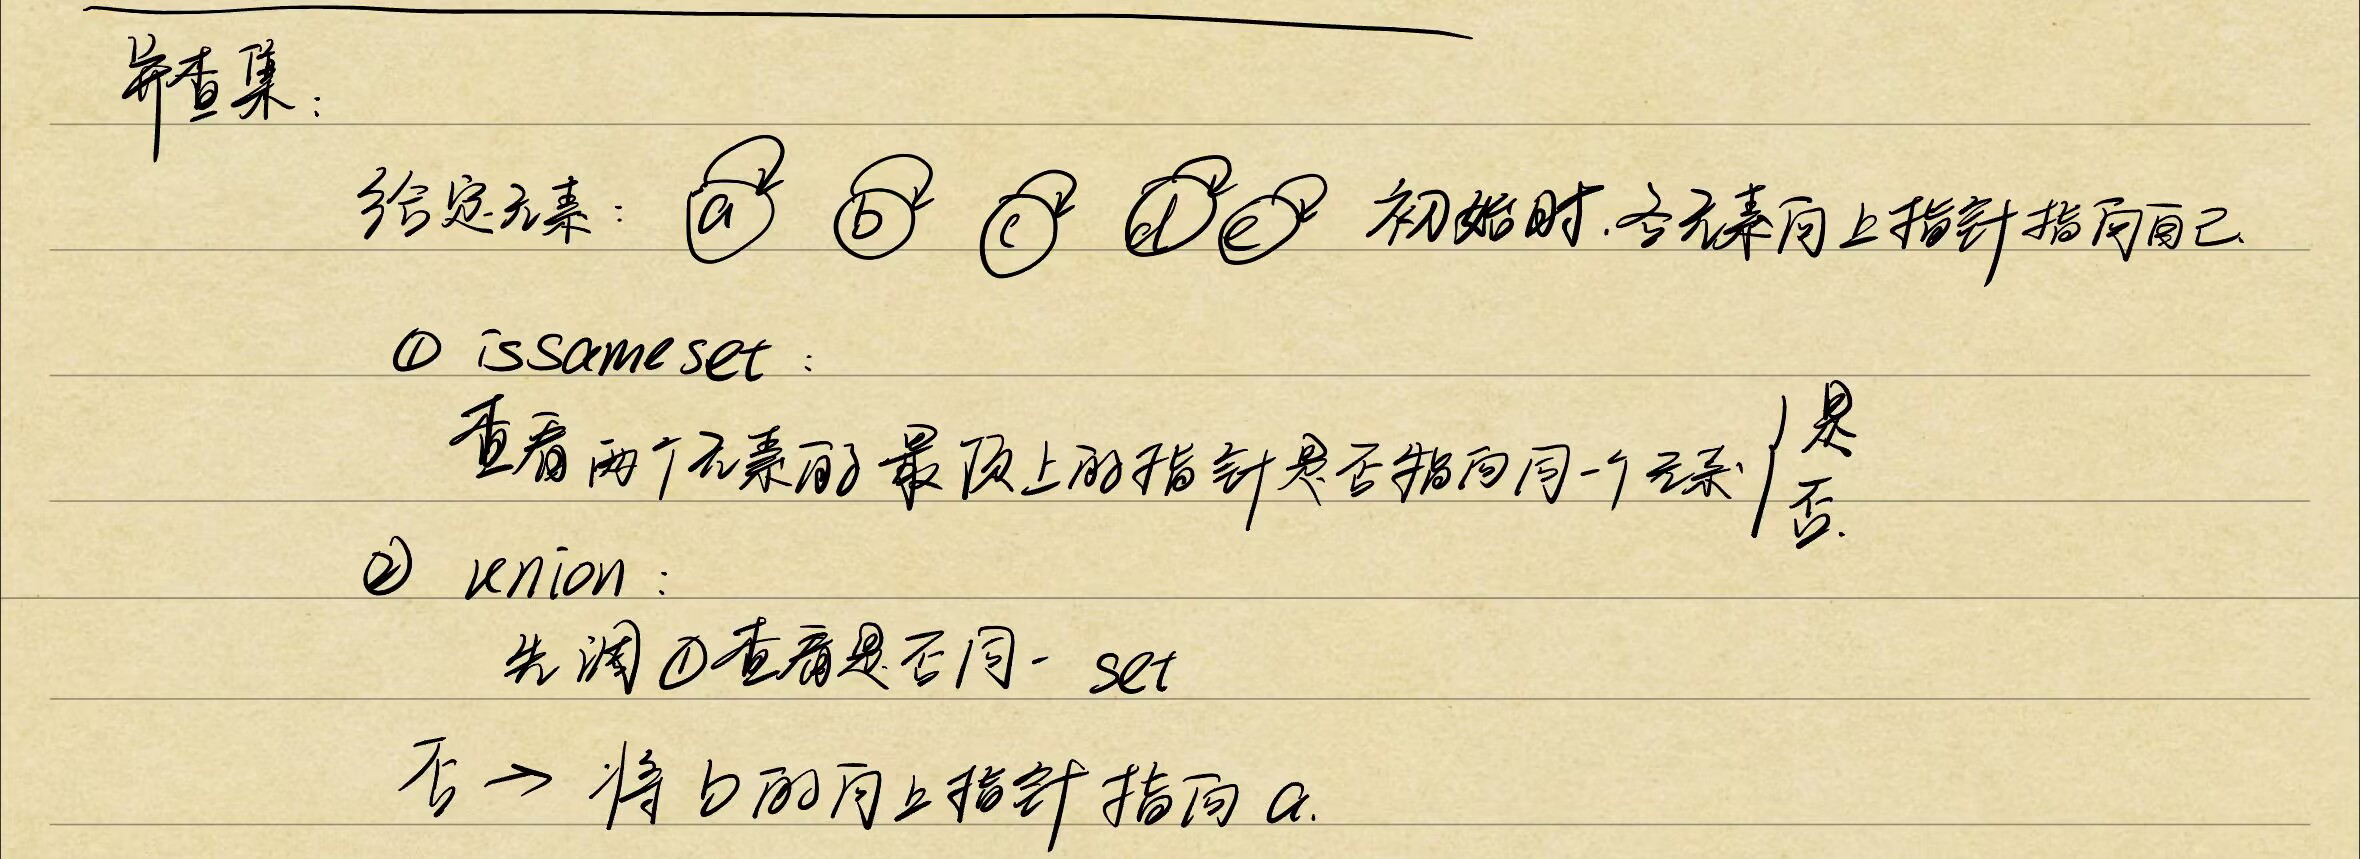 并查集：
给定元素： a b c d e 初始时.各元素向上指针指向自己.
① issameset：
查看两个元素的最顶上的指针是否指向同一个元素. { 是
否.
② union：
先调①查看是否同一 set
否 → 将 b 的向上指针指向 a.